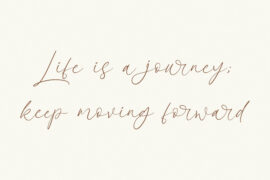 Life is a journey;
keep moving forward